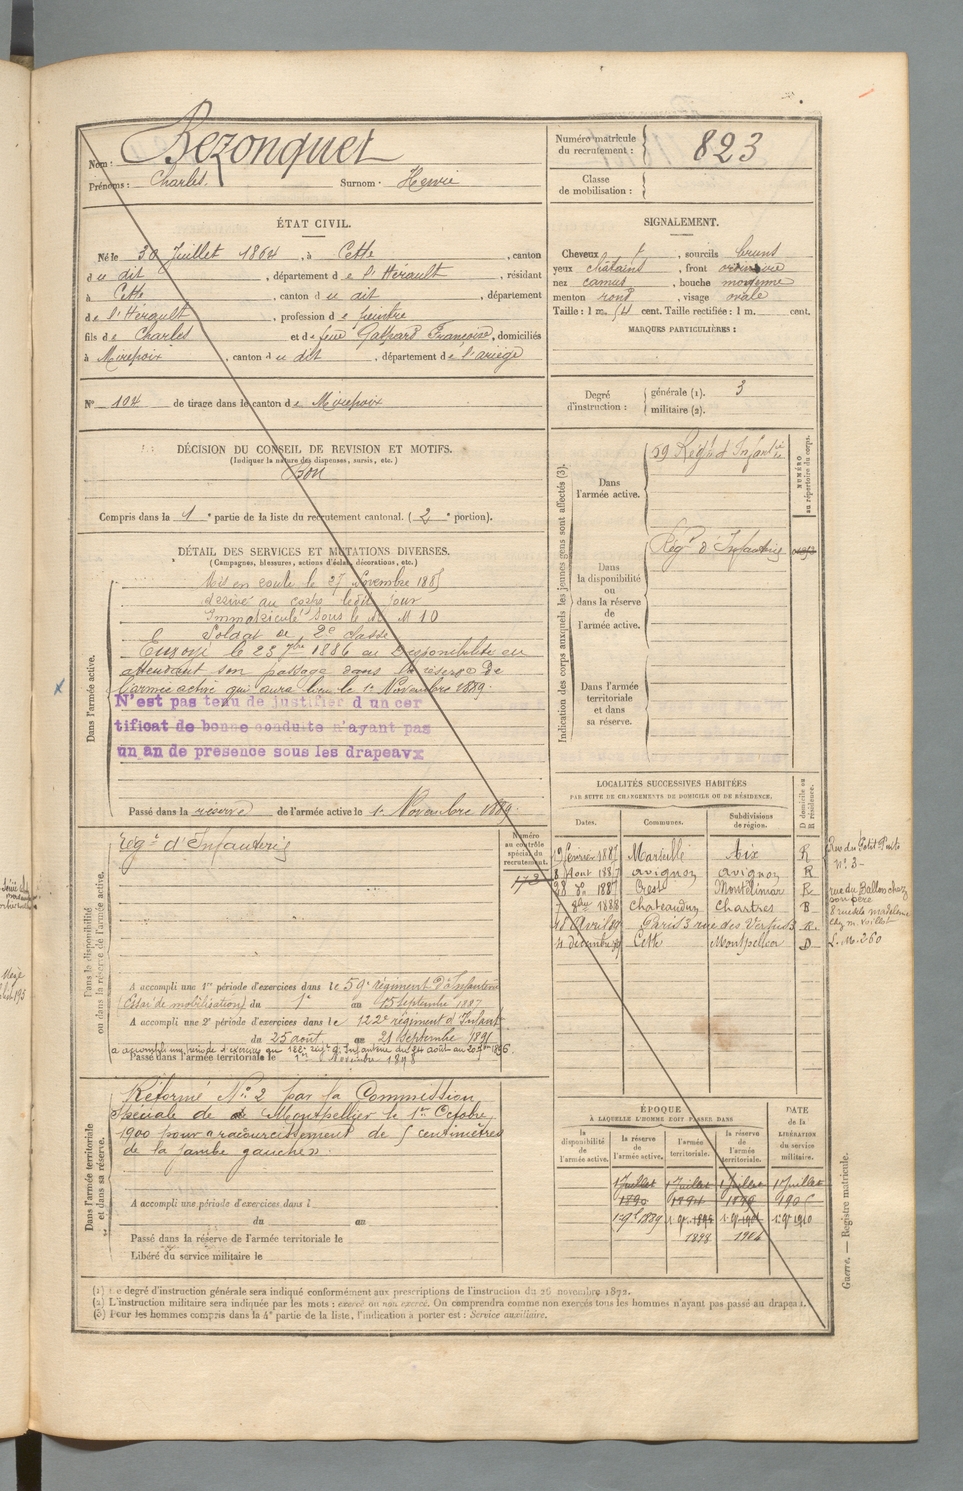 Nom : Bezonquet
Prénoms : Charles. Surnom : Henri
Numéro matricule du recrutement : 823
Classe de mobilisation :
ÉTAT CIVIL.
Né le 30 Juillet 1864, à Cette, canton
du dit, département de l'Hérault, résidant
à Cette, canton du dit, département
de l'Hérault, profession de peintre
fils de Charles et de feue Gaspard Françoise, domiciliés
à Mirepoix, canton du dit, département de l'ariège
SIGNALEMENT.
Cheveux, sourcils bruns
yeux châtains, front ordinaire
nez camus, bouche moyenne
menton rond, visage ovale
Taille : 1 m. 54 cent. Taille rectifiée : 1 m. cent.
MARQUES PARTICULIÈRES :
N° 104 de tirage dans le canton de Mirepoix
Degré d'instruction : générale (1). 3
militaire (2).
DÉCISION DU CONSEIL DE REVISION ET MOTIFS.
(Indiquer la nature des dispenses, sursis, etc.)
Bon
Compris dans la 1e partie de la liste du recrutement cantonal. (2e portion).
DÉTAIL DES SERVICES ET MUTATIONS DIVERSES.
(Campagnes, blessures, actions d'éclat, décorations, etc.)
Dans l'armée active.
Mis en route le 27 novembre 1885
arrivé au corps ledit jour
Immatriculé sous le N° M 10
Soldat de 2e classe
Envoyé le 23 7bre 1886 en Disponibilité en
attendant son passage dans la réserve de
l'armée active qui aura lieu le 1er Novembre 1889.
N'est pas tenu de justifier d un cer
tificat de bonne conduite n'ayant pas
un an de presence sous les drapeaux
Passé dans la reserve de l'armée active le 1er Novembre 1889.
Indication des corps auxquels les jeunes gens sont affectés (3).
NUMÉRO au répertoire du corps.
Dans l'armée active.
59 Régt d'Infantie
Dans la disponibilité ou dans la réserve de l'armée active.
Régt d'Infanterie
Dans l'armée territoriale et dans sa réserve.
LOCALITÉS SUCCESSIVES HABITÉES
PAR SUITE DE CHANGEMENTS DE DOMICILE OU DE RÉSIDENCE.
Dates. Communes. Subdivisions de région. D domicile ou R résidence.
19 février 1887 Marseille Aix R Rue du Petit Puits n° 3
8 Aout 1887 avignon avignon R
28 do 1887 Crest Montélimar R
7 8bre 1888 Chateaudun Chartres
Avril 89 Paris 3 rue des Vertus R.
4 décembre 89 Cette Montpellier D
Dans la disponibilité ou dans la réserve de l'armée active.
Régt d'Infanterie
Numéro au contrôle spécial du recrutement.
173
A accompli une 1re période d'exercices dans le 59e régiment d'Infanterie
(Essai de mobilisation) du 1er au 15 Septembre 1887
A accompli une 2e période d'exercices dans le 122e régiment d'Infant
du 25 août au 21 Septembre 1891
a accompli une période d'exercice au 122e régt d'Infanterie du 24 août au 20 7bre 1896.
Passé dans l'armée territoriale le 1er Novembre 1898
Dans l'armée territoriale et dans sa réserve.
Réformé N° 2 par la Commission
Spéciale de Montpellier le 1er Octobre
1900 pour "raccourcissement de 5 centimètres
de la jambe gauche".
A accompli une période d'exercices dans l
du au
Passé dans la réserve de l'armée territoriale le
Libéré du service militaire le
ÉPOQUE
À LAQUELLE L'HOMME DOIT PASSER DANS
DATE de la LIBÉRATION du service militaire.
la disponibilité de l'armée active. la réserve de l'armée active. l'armée territoriale. la réserve de l'armée territoriale.
1 Juillet 1 Juillet 1 Juillet 1 Juillet
1890 1894 1899
1898 1904
(1) Le degré d'instruction générale sera indiqué conformément aux prescriptions de l'instruction du 26 novembre 1872.
(2) L'instruction militaire sera indiquée par les mots : exercé ou non exercé. On comprendra comme non exercés tous les hommes n'ayant pas passé au drapeau.
(3) Pour les hommes compris dans la 4e partie de la liste, l'indication à porter est : Service auxiliaire.
Guerre. — Registre matricule.